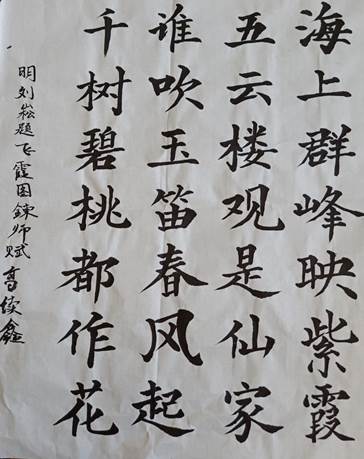 海上群峰映紫霞
五云楼观是仙家
谁吹玉笛春风起
千树碧桃都作花
明刘崧题飞霞图鍊师赋 高俊鑫